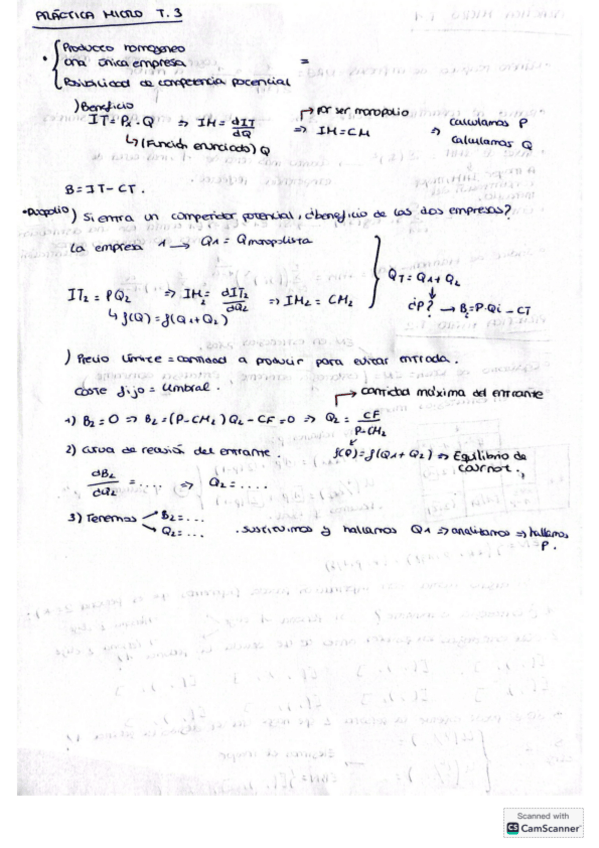 PRÁCTICA MICRO T.3
• { Producto homogéneo
una única empresa =
Posibilidad de competencia potencial
) Beneficio
IT = Px · Q ⇒ IM = dIT/dQ ⇒ IM = CM ⇒ calculamos P
↳ (Función enunciado) Q → por ser monopolio calculamos Q
B = IT - CT.
• Duopolio ) Si entra un competidor potencial, ¿beneficio de las dos empresas?
La empresa 1 → Q1 = Qmonopolista
QT = Q1 + Q2
IT2 = PQ2 ⇒ IM2 = dIT2/dQ2 ⇒ IM2 = CM2
↳ f(Q) = f(Q1 + Q2)
¿P? → B2 = P·Qi - CT
) Precio límite = cantidad a producir para evitar entrada.
Coste fijo = Umbral.
→ cantidad máxima del entrante
1) B2 = 0 ⇒ B2 = (P - CM2) Q2 - CF = 0 ⇒ Q2 = CF/P-CM2
2) Curva de reacción del entrante.
f(Q) = f(Q1 + Q2) ⇒ Equilibrio de Cournot.
dB2/dQ2 = .... ⇒ Q2 = ....
3) Tenemos B2 = ...
Q2 = ...
. sustituimos y hallamos Q1 ⇒ analizamos ⇒ hallamos P.
Scanned with
CS CamScanner